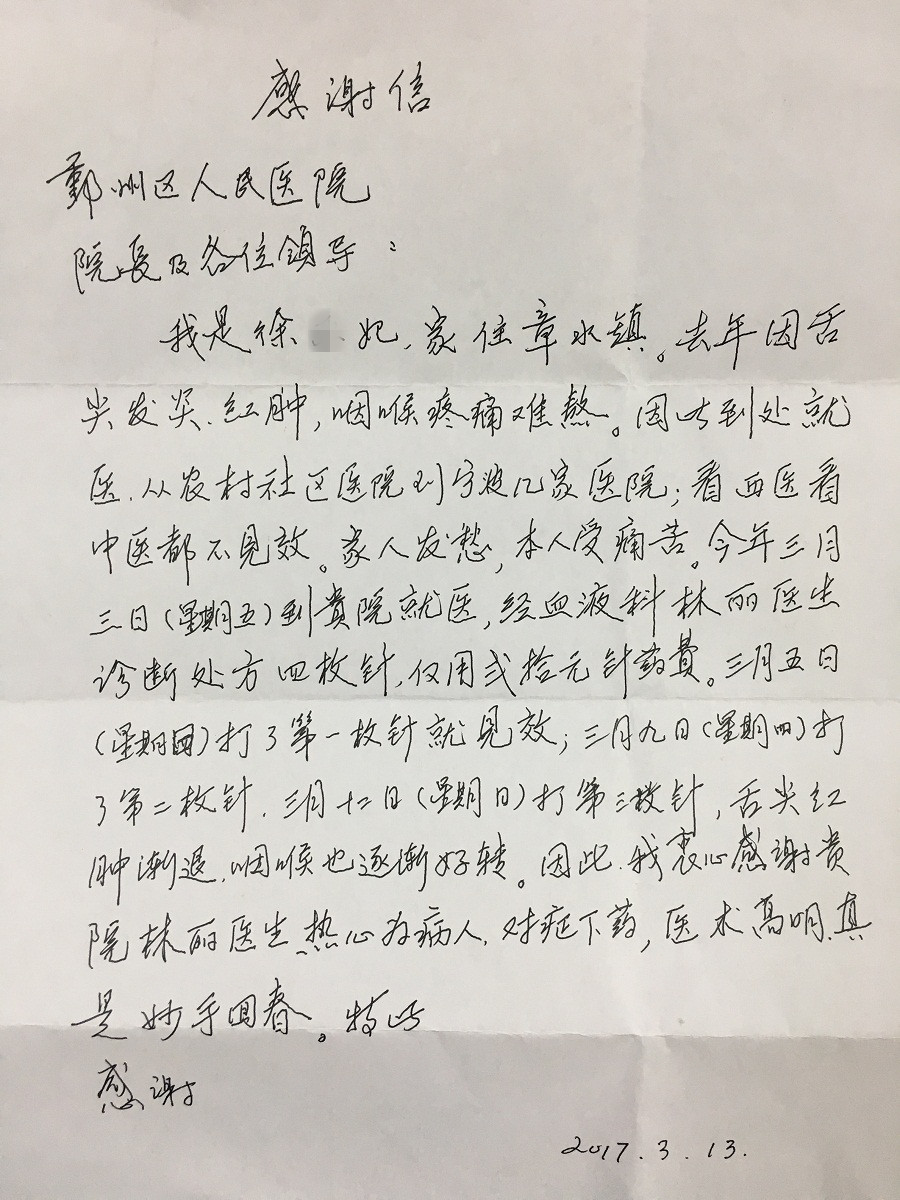 感谢信
鄞州区人民医院
院长及各位領导：
我是徐 妃，家住章水镇。去年因舌
尖发炎、红肿，咽喉疼痛难熬。因此到处就
医，从农村社区医院到宁波几家医院；看西医看
中医都不见效。家人发愁，本人受痛苦。今年三月
三日（星期五）到贵院就医，经血液科林丽医生
诊断处方四枚针，仅用弍拾元针药费。三月五日
（星期）打了第一枚针就见效；三月九日（星期四）打
了第二枚针，三月十二日（星期日）打第三枚针，舌尖红
肿渐退，咽喉也逐渐好转。因此，我衷心感谢贵
院林丽医生热心为病人，对症下药，医术高明，真
是妙手回春。特此
感谢
2017.3.13.